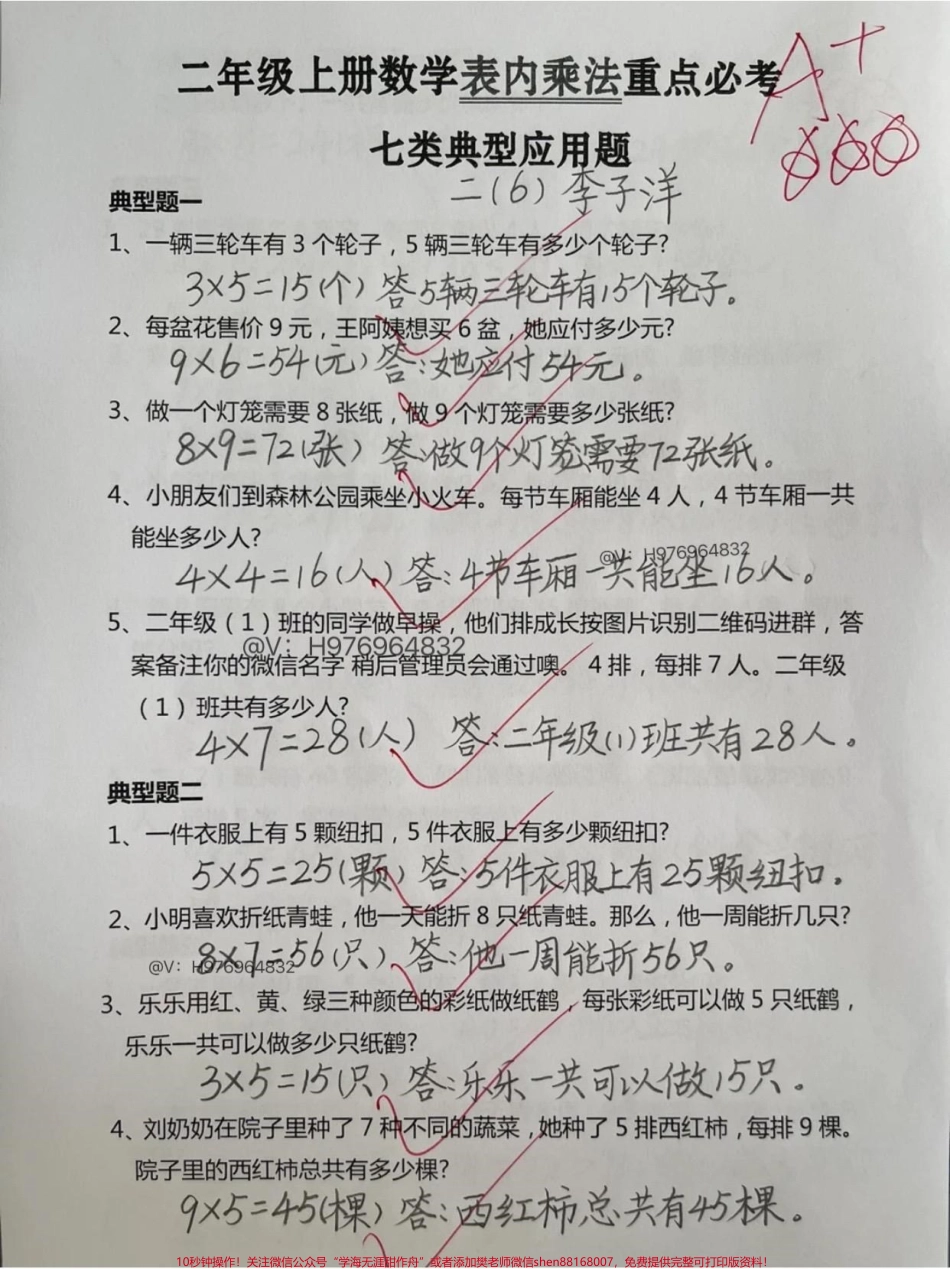 二年级上册数学表内乘法重点必考
A+
七类典型应用题
二(6) 李子洋
典型题一
1、一辆三轮车有 3 个轮子，5 辆三轮车有多少个轮子?
3×5=15(个) 答5辆三轮车有15个轮子。
2、每盆花售价 9 元，王阿姨想买 6 盆，她应付多少元?
9×6=54(元) 答：她应付54元。
3、做一个灯笼需要 8 张纸，做 9 个灯笼需要多少张纸?
8×9=72(张) 答：做9个灯笼需要72张纸。
4、小朋友们到森林公园乘坐小火车。每节车厢能坐 4 人，4 节车厢一共
能坐多少人?
@V：H976964832
4×4=16(人) 答：4节车厢一共能坐16人。
5、二年级（1）班的同学做早操，他们排成长按图片识别二维码进群，答
@V：H976964832
案备注你的微信名字 稍后管理员会通过噢。 4 排，每排 7 人。二年级
（1）班共有多少人?
4×7=28(人) 答：二年级(1)班共有28人。
典型题二
1、一件衣服上有 5 颗纽扣，5 件衣服上有多少颗纽扣?
5×5=25(颗) 答：5件衣服上有25颗纽扣.
2、小明喜欢折纸青蛙，他一天能折 8 只纸青蛙。那么，他一周能折几只?
8×7=56(只) 答：他一周能折56只。
@V：H976964832
3、乐乐用红、黄、绿三种颜色的彩纸做纸鹤，每张彩纸可以做 5 只纸鹤，
乐乐一共可以做多少只纸鹤?
3×5=15(只) 答：乐乐一共可以做15只。
4、刘奶奶在院子里种了 7 种不同的蔬菜，她种了 5 排西红柿，每排 9 棵。
院子里的西红柿总共有多少棵?
9×5=45(棵) 答：西红柿总共有45棵。
10秒钟操作！关注微信公众号“学海无涯甜作舟”或者添加樊老师微信shen88168007，免费提供完整可打印版资料！